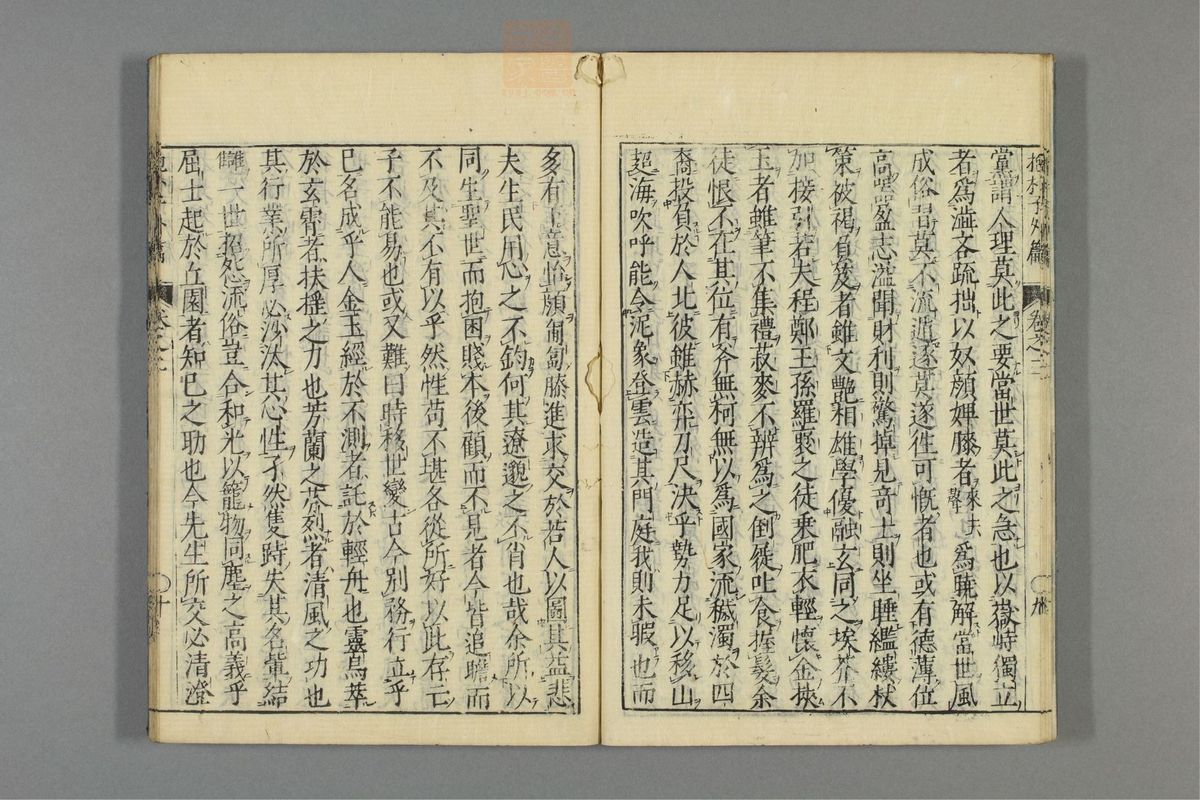 抱朴子外篇 卷之二 九
黨謂人理莫此之要當世莫此之急也以嶽峙獨立
者爲澁吝疏拙以奴顏婢膝者爲曉解當世風
成俗習莫不流遁遂往可慨者也或有德薄位
高器盈志溢聞財利則驚掉見竒士則坐睡繿縷杖
策被褐負笈者雖文艶相雄學優融玄同之埃芥不
加接引若夫程鄭王孫羅裒之徒乗肥衣輕懷金挾
玉者雖筆不集禮菽麥不辨爲之倒屣吐食握髮余
徒恨不在其位有斧無柯無以爲國家流穢濁於四
裔投負於人北彼雖赫奕刀尺決乎勢力足以移山
超海吹呼能令泥象登雲造其門庭我則未暇也而
多有下意怡顏匍匐膝進求交於若人以圖其益悲
夫生民用心之不鈞何其遼邈之不肖也哉余所以
同生聖世而抱困賤本後顧而不見者今皆追瞻而
不及其不有以乎然性苟不堪各從所好以此存亡
子不能易也或又難曰時移世變古今別務行立乎
已名成乎人金玉經於不測者託於輕舟也靈烏萃
於玄霄者扶揺之力也芳蘭之芬烈者清風之功也
屈士起於丘園者知己之助也今先生所交必清澄
其行業所厚必沙汰其心性孑然隻跱失其名輩結
讎一世招怨流俗豈合和光以籠物同塵之高義乎